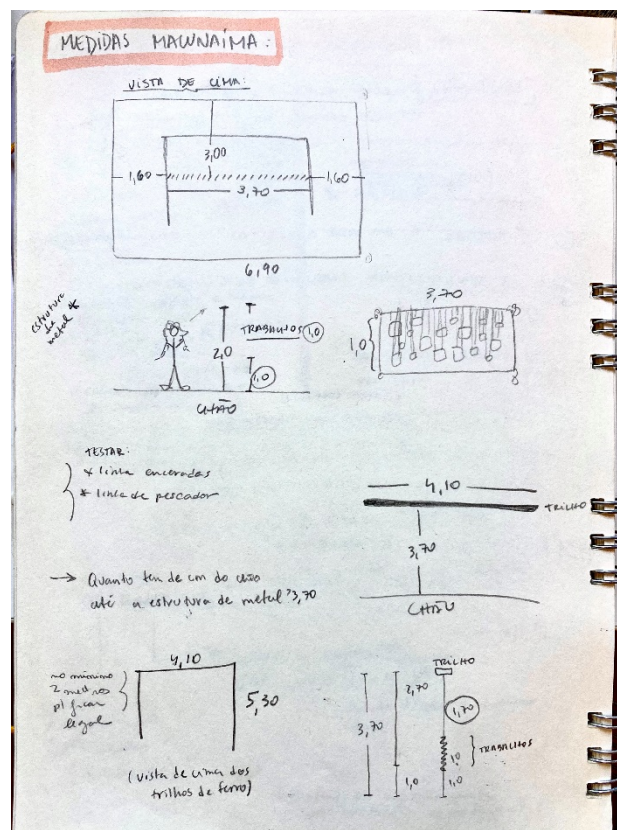 MEDIDAS MACUNAÍMA:
VISTA DE CIMA:
3,00
1,60
1,60
3,70
6,90
estrutura
de
metal *
TRABALHOS 1,0
2,0
1,0
CHÃO
3,70
1,0
TESTAR:
* linha enceradas
* linha de pescador
4,10
TRILHO
3,70
CHÃO
→ Quanto tem de cm do chão
até a estrutura de metal? 3,70
4,10
no mínimo
2 metros
p/ ficar
legal
5,30
(vista de cima dos
trilhos de ferro)
TRILHO
2,70
3,70
1,70
1,0
TRABALHOS
1,0
1,0